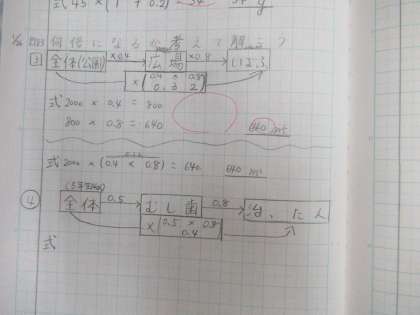 式 45×(1+0.2)=54 54 g
何倍になるか考えて解こう
3 全体(公園) ×0.4 広場 ×0.8 しばふ
×(0.4×0.8)
0.32
式 2000 × 0.4 = 800
800 × 0.8 = 640
640 m²
式 2000 × (0.4 × 0.8) = 640 640 m²
4 全体 0.5 むし歯 0.8 治った人
×(0.5×0.8)
0.4
式